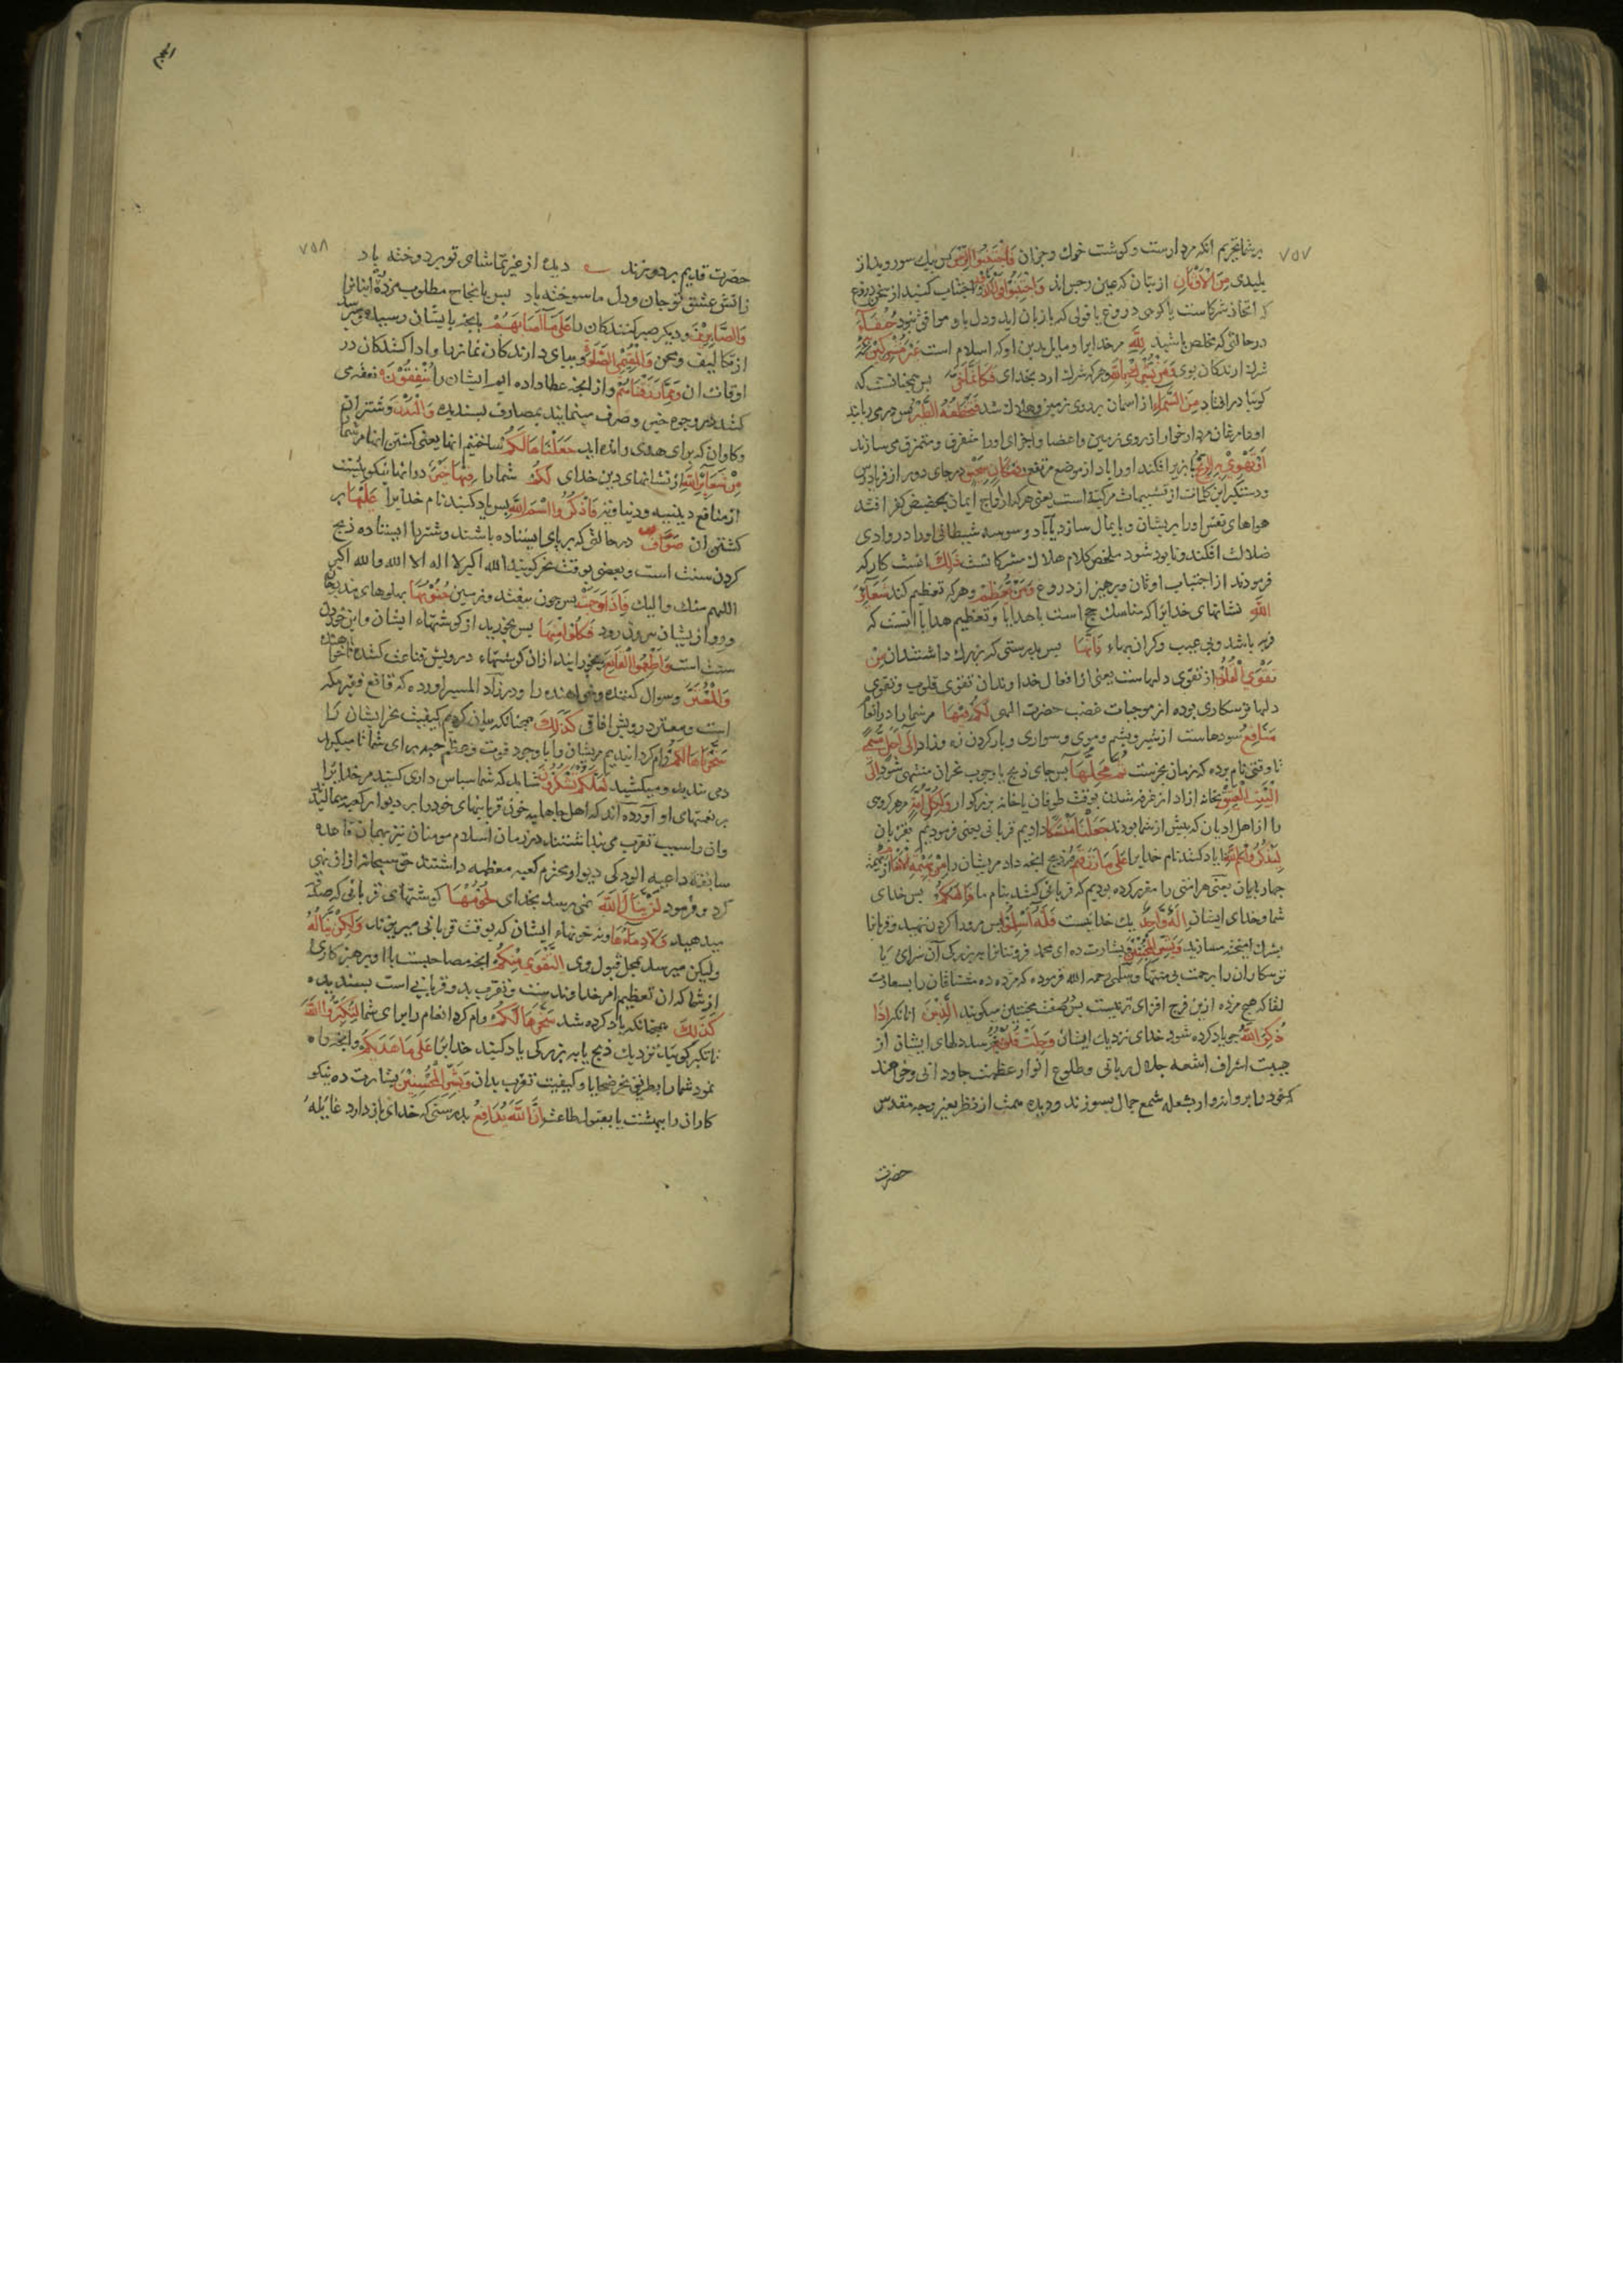 ۷۵۷
بر شما تحریم آنکه مردارست و گوشت خوک و جز آن فَاجْتَنِبُوا الرِّجْسَ پس یک سو روید از
پلیدی مِنَ الْاَوْثَانِ از بتان که عین رجس اند وَاجْتَنِبُوا قَوْلَ الزُّورِ اجتناب کنید از سخن دروغ
که اتخاذ شرکاست یا گواهی دروغ یا قولی که بازبان آید و دل با او موافق نبود حُنَفَآءَ
در حالتی که مخلص باشید لِلّٰهِ مر خدایرا و مایل بدین او که اسلام است غَیْرَ مُشْرِکِیْنَ بِهٖ نه
شرک آرندگان بوی وَمَنْ یُّشْرِکْ بِاللّٰهِ و هر که شرک آرد بخدای فَکَاَنَّمَا خَرَّ پس همچنانست که
گویا درافتاد مِنَ السَّمَآءِ از آسمان بر روی زمین و هلاک شد فَتَخْطَفُهُ الطَّیْرُ پس درمی رباید
او را مرغان مردارخوار از روی زمین و اعضا و اجزای او را متفرق و متمزق می سازند
اَوْ تَهْوِیْ بِهِ الرِّیْحُ یا بزیر افکند او را باد از موضع مرتفع فِیْ مَکَانٍ سَحِیْقٍ در جای دور از فریادرس
و دستگیر این کلمات از تشبیهات مرکبه است یعنی هر که از اوج ایمان بحضیض کفر افتد
هواهای نفس او را پریشان و پایمال سازد یا باد وسوسه شیطانی او را در وادی
ضلالت افکند و نابود شود ملخص کلام هلاک مشرکانست ذٰلِکَ اینست کار که
فرمودند از اجتناب اوثان و پرهیز از دروغ وَمَنْ یُّعَظِّمْ و هر که تعظیم کند شَعَآئِرَ
اللّٰهِ نشانهای خدایرا که مناسک حج است یا هدایا و تعظیم هدایا آنست که
فربه باشد و بی عیب و گران بهاء فَاِنَّهَا پس بدرستی که بزرگ داشتندان مِنْ
تَقْوَی الْقُلُوْبِ از تقوی دلهاست یعنی از افعال خداوندان تقوی قلوب و تقوی
دلها ترسکاری بوده از موجبات غضب حضرت الهی لَکُمْ فِیْهَا مر شما را در انعام
مَنَافِعُ سودهاست از شیر و پشم و موی و سواری و بار کردن و زاد اِلٰٓی اَجَلٍ مُّسَمًّی
تا وقتی نام برده که زمان نحرست ثُمَّ مَحِلُّهَا پس جای ذبح یا وجوب نحران منتهی شود اِلَی
الْبَیْتِ الْعَتِیْقِ بخانه آزاد از غرق شدن بوقت طوفان یا خانه بزرکوار وَلِکُلِّ اُمَّةٍ و مر هر گروهی
را از اهل ادیان که پیش از شما بودند جَعَلْنَا مَنْسَکًا دادیم قربانی یعنی فرمودیم بقربان
لِیَذْکُرُوا اسْمَ اللّٰهِ تا یاد کنند نام خدایرا عَلٰی مَا رَزَقَهُمْ بر ذبح آنچه داد مر ایشان را مِنْ بَهِیْمَةِ الْاَنْعَامِ از بهیمه
چهارپایان یعنی هر امتی را مقرر کرده بودیم که قربانی کنند بنام ما فَاِلٰهُکُمْ پس خدای
شما و خدای ایشان اِلٰهٌ وَّاحِدٌ یک خدایست فَلَهٗٓ اَسْلِمُوْا پس مرورا گردن نهید و قربانرا
بشرک آمیخته مسازید وَبَشِّرِ الْمُخْبِتِیْنَ و بشارت ده ای محمد فروتنانرا به بزرگی آن سرای یا
ترسکاران را برحمت بی منتها و سلمی رحمه الله فرموده که مژده ده مشتاقان را بسعادت
لقا که هیچ مژده ازین فرح افزای تر نیست پس صفت مخبتین میکوید الَّذِیْنَ آنانکه اِذَا
ذُکِرَ اللّٰهُ چون یاد کرده شود خدای نزدیک ایشان وَجِلَتْ قُلُوْبُهُمْ بترسد دلهای ایشان از
هیبت اشراف اشعه جلال ربانی و طلوع انوار عظمت جاودانی و خواهند
که خود را پروانه وار بشعله شمع جمال بسوزند و دیده همت از نظر بغیر وجه مقدس
حضرت
۷۵۸
حضرت قدیم بردوزند دیده از غیر تماشای تو بردوخته باد
زاتش عشق تو جان و دل ما سوخته باد پس بانجاح مطلوب مژده ده اینانرا
وَالصّٰبِرِیْنَ و دیگر صبر کنندگان را عَلٰی مَآ اَصَابَهُمْ بآنچه بایشان رسید و میرسد
از تکالیف و محن وَالْمُقِیْمِی الصَّلٰوةِ و بپای دارندکان نمازها و ادا کنندکان در
اوقات آن وَمِمَّا رَزَقْنٰهُمْ و از آنچه عطا داده ایم ایشان را یُنْفِقُوْنَ نفقه می
کنند در وجوه خیر و صرف مینمایند بمصارف پسندیده وَالْبُدْنَ و شتران
و کاوان که برای هدی رانده اید جَعَلْنٰهَا لَکُمْ ساختیم آنها یعنی کشتن آنها مر شما
مِنْ شَعَآئِرِ اللّٰهِ از نشانهای دین خدای لَکُمْ شما را فِیْهَا خَیْرٌ در آنها نیکوییست
از منافع دینیه و دنیاویه فَاذْکُرُوا اسْمَ اللّٰهِ پس یاد کنید نام خدایرا عَلَیْهَا بر
کشتن آن صَوَآفَّ در حالتی که بر پای ایستاده باشند و شتر را ایستاده ذبح
کردن سنت است و بعضی بوقت نحر کویند الله اکبر لا اله الا الله والله اکبر
اللهم منک والیک فَاِذَا وَجَبَتْ پس چون بیفتد و برسد جُنُوْبُهَا پهلوهای
و روح از یشان بیرون رود فَکُلُوْا مِنْهَا پس بخورید از کوشتهاء ایشان و این خوردن
سنت است وَاَطْعِمُوا الْقَانِعَ و بخورانید از آن کوشتهاء درویش قناعت کننده
وَالْمُعْتَرَّ و سوال کننده و خواهنده را و در زاد المسیر آورده که قانع فقیر مکه
است و معتر درویش آفاقی کَذٰلِکَ همچنانکه بیان کردیم کیفیت نحر ایشان را
سَخَّرْنٰهَا لَکُمْ رام گردانیدیم مر یشان را با وجود قوت و عظم جثه برای شما تا میکیرید
و می بندید و میکشید لَعَلَّکُمْ تَشْکُرُوْنَ شاید که شما سپاس داری کنید مر خدایرا
بر نعمتهای او آورده اند که اهل جاهلیه خون قربانیهای خود را بر دیوار کعبه میمالیدند
و آن را سبب تقرب می پنداشتند در زمان اسلام مومنان نیز بهمان قاعده
سابقه داعیه آلودکی دیوار محترم کعبه معظمه داشتند حق سبحانه از آن نهی
کرد و فرمود لَنْ یَّنَالَ اللّٰهَ نمی رسد بخدای لُحُوْمُهَا کوشتهای قربانی که صدقه
میدهید وَلَا دِمَآؤُهَا و نه خونهاء ایشان که بوقت قربانی میریزند وَلٰکِنْ یَّنَالُهُ
ولیکن میرسد بمحل قبول وی التَّقْوٰی مِنْکُمْ آنچه مصاحبست با او پرهیزکاری
از شما که آن تعظیم امر خداوندست و تقرب بدو قربانی است پسندیده
کَذٰلِکَ همچنانکه یاد کرده شد سَخَّرَهَا لَکُمْ رام کرد انعام را برای شما لِتُکَبِّرُوا اللّٰهَ
تا تکبیر کویید نزدیک ذبح یا به بزرکی یاد کنید خدایرا عَلٰی مَا هَدٰیکُمْ بر آنچه راه
نمود شما را بطریق نحر ضحایا و کیفیت تقرب بدان وَبَشِّرِ الْمُحْسِنِیْنَ بشارت ده نیکو
کاران را ببهشت یا بقبول طاعت اِنَّ اللّٰهَ یُدَافِعُ بدرستی که خدای باز دارد غایله